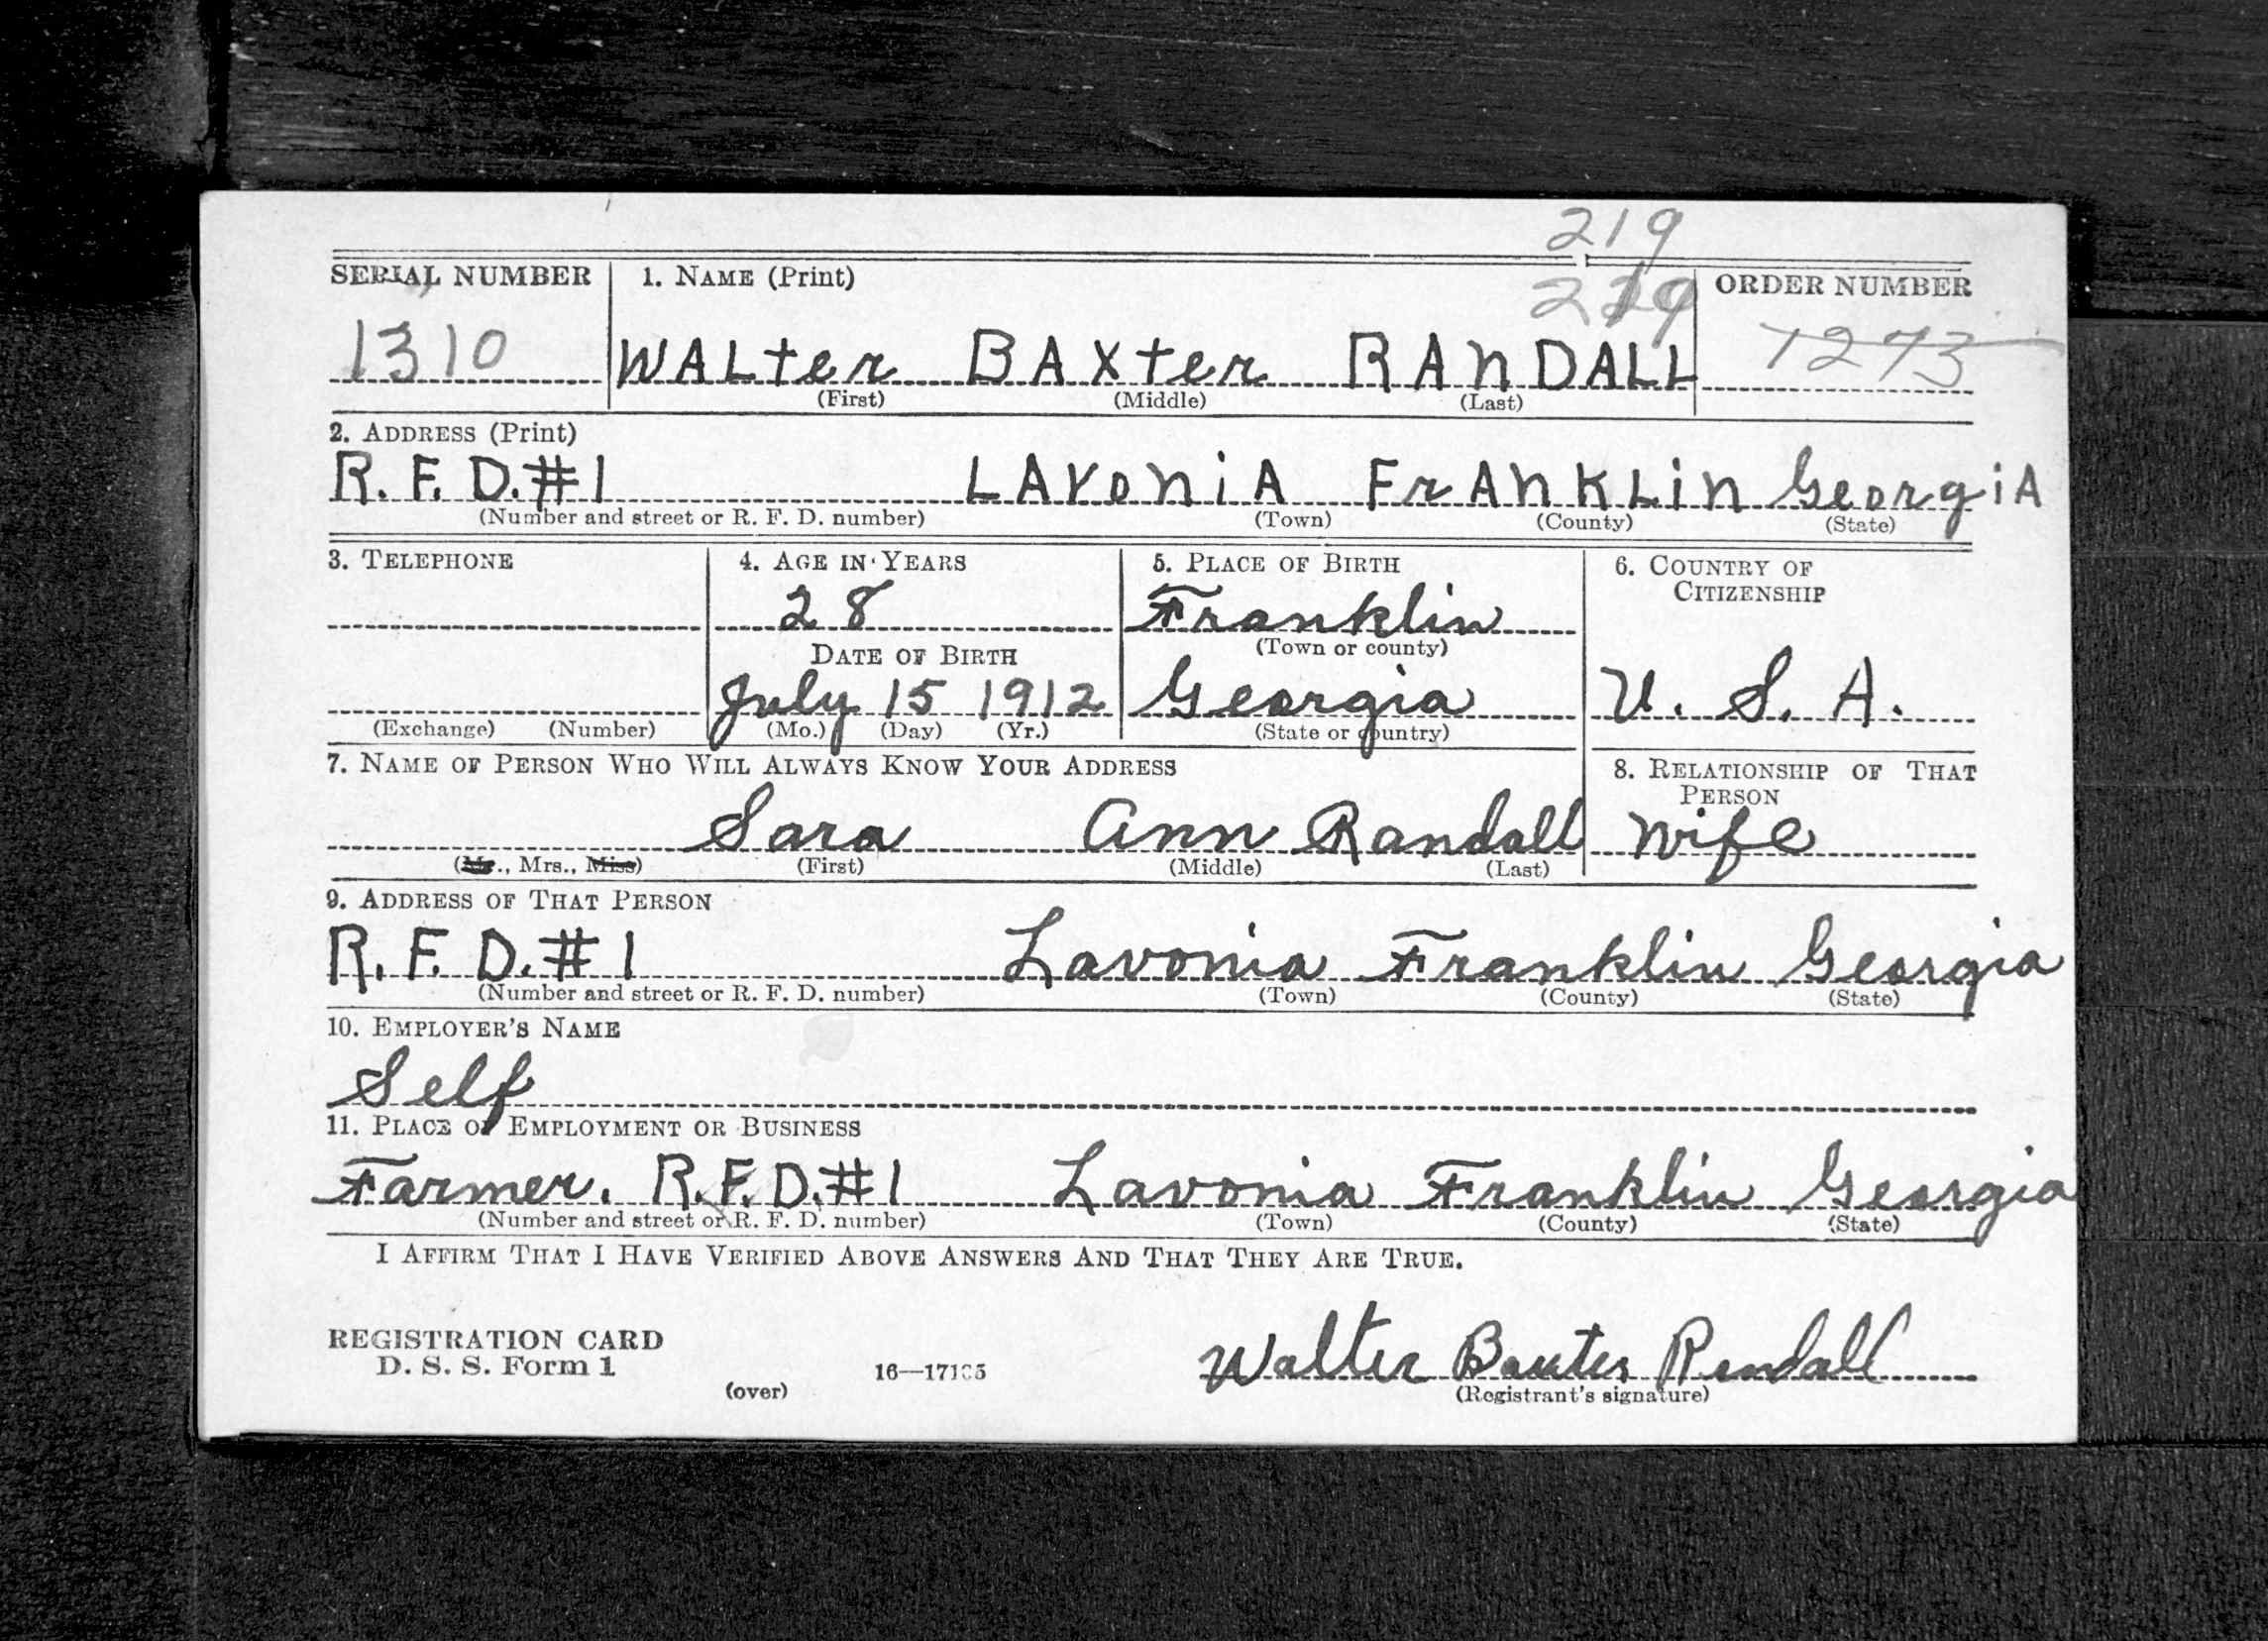 219
SERIAL NUMBER 1. NAME (Print) ORDER NUMBER
1310 WALter BAXter RANDALL 1273
(First) (Middle) (Last)
2. ADDRESS (Print)
R. F. D. #1 LAVoniA FrANKLin GeorgiA
(Number and street or R. F. D. number) (Town) (County) (State)
3. TELEPHONE 4. AGE IN YEARS 5. PLACE OF BIRTH 6. COUNTRY OF CITIZENSHIP
28 Franklin
DATE OF BIRTH (Town or county)
July 15 1912 Georgia U. S. A.
(Exchange) (Number) (Mo.) (Day) (Yr.) (State or country)
7. NAME OF PERSON WHO WILL ALWAYS KNOW YOUR ADDRESS 8. RELATIONSHIP OF THAT PERSON
Sara Ann Randall Wife
(Mr., Mrs., Miss) (First) (Middle) (Last)
9. ADDRESS OF THAT PERSON
R. F. D. #1 Lavonia Franklin Georgia
(Number and street or R. F. D. number) (Town) (County) (State)
10. EMPLOYER'S NAME
Self
11. PLACE OF EMPLOYMENT OR BUSINESS
Farmer. R. F. D. #1 Lavonia Franklin Georgia
(Number and street or R. F. D. number) (Town) (County) (State)
I AFFIRM THAT I HAVE VERIFIED ABOVE ANSWERS AND THAT THEY ARE TRUE.
REGISTRATION CARD
D. S. S. Form 1 (over) Walter Baxter Randall
(Registrant's signature)